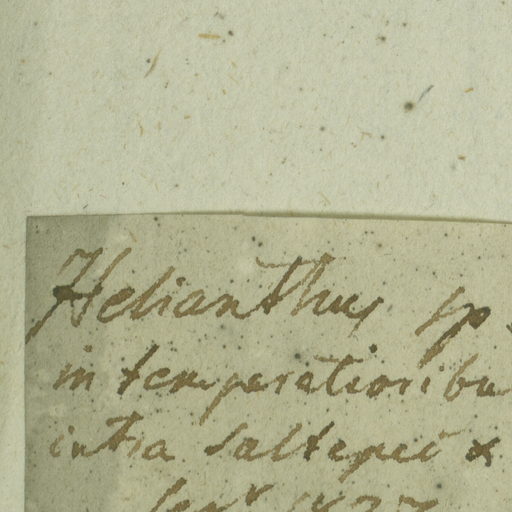 Helianthus sp.
in temperatioribu
intra Saltepec &